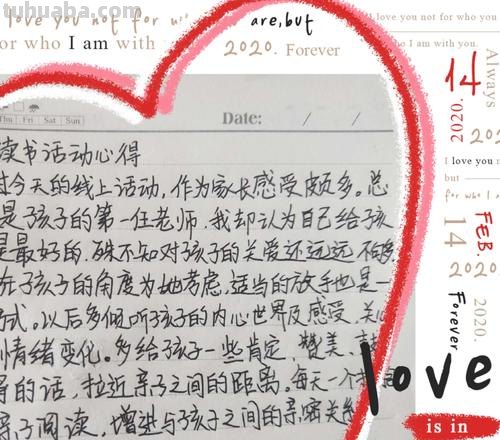 tuhuaba.com
love you not for who are, but
I love you not for who you
or who I am with
2020. Forever
who I am with you.
Always
14
2020.
2020
I love you not
but
for who I
14
FEB.
2020
2020.
Forever
Thu Fri Sat Sun
Date: / /
读书活动心得
过今天的线上活动,作为家长感受颇多。总
是孩子的第一任老师,我却认为自己给孩
是最好的,殊不知对孩子的关爱还远远不够
在孩子的角度为她考虑,适当的放手也是一
式。以后多倾听孩子的内心世界及感受,关心
情绪变化。多给孩子一些肯定,赞美,鼓
的话,拉近亲子之间的距离。每天一个
亲子阅读,增进与孩子之间的亲密关系
love
is in